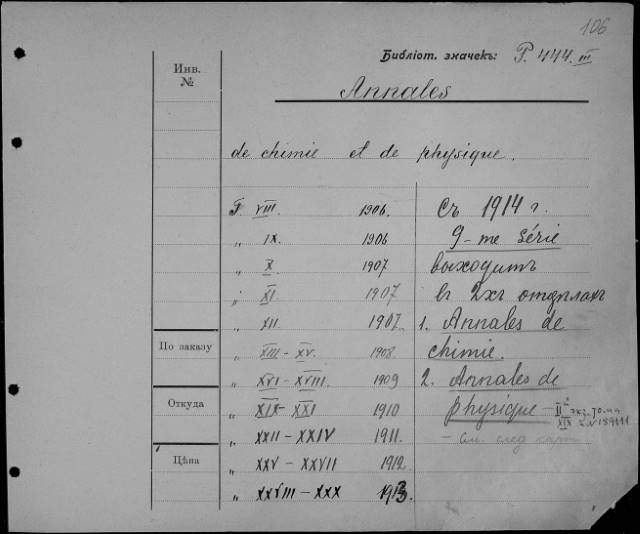 106
Библіот. значекъ: P. 444. III
Инв.
№
Annales
de chimie et de physique.
T. VIII. 1906.
„ IX. 1906
„ X 1907
„ XI 1907
„ XII 1907.
„ XIII – XV. 1908.
„ XVI – XVIII. 1909
„ XIX – XXI 1910
„ XXII – XXIV 1911.
„ XXV – XXVII 1912.
„ XXVIII – XXX 1913.
По заказу
Откуда
Цѣна
Съ 1914 г.
9-me série
выходитъ
въ 2хъ отдѣлахъ
1. Annales de
chimie.
2. Annales de
physique –
– см. след карт